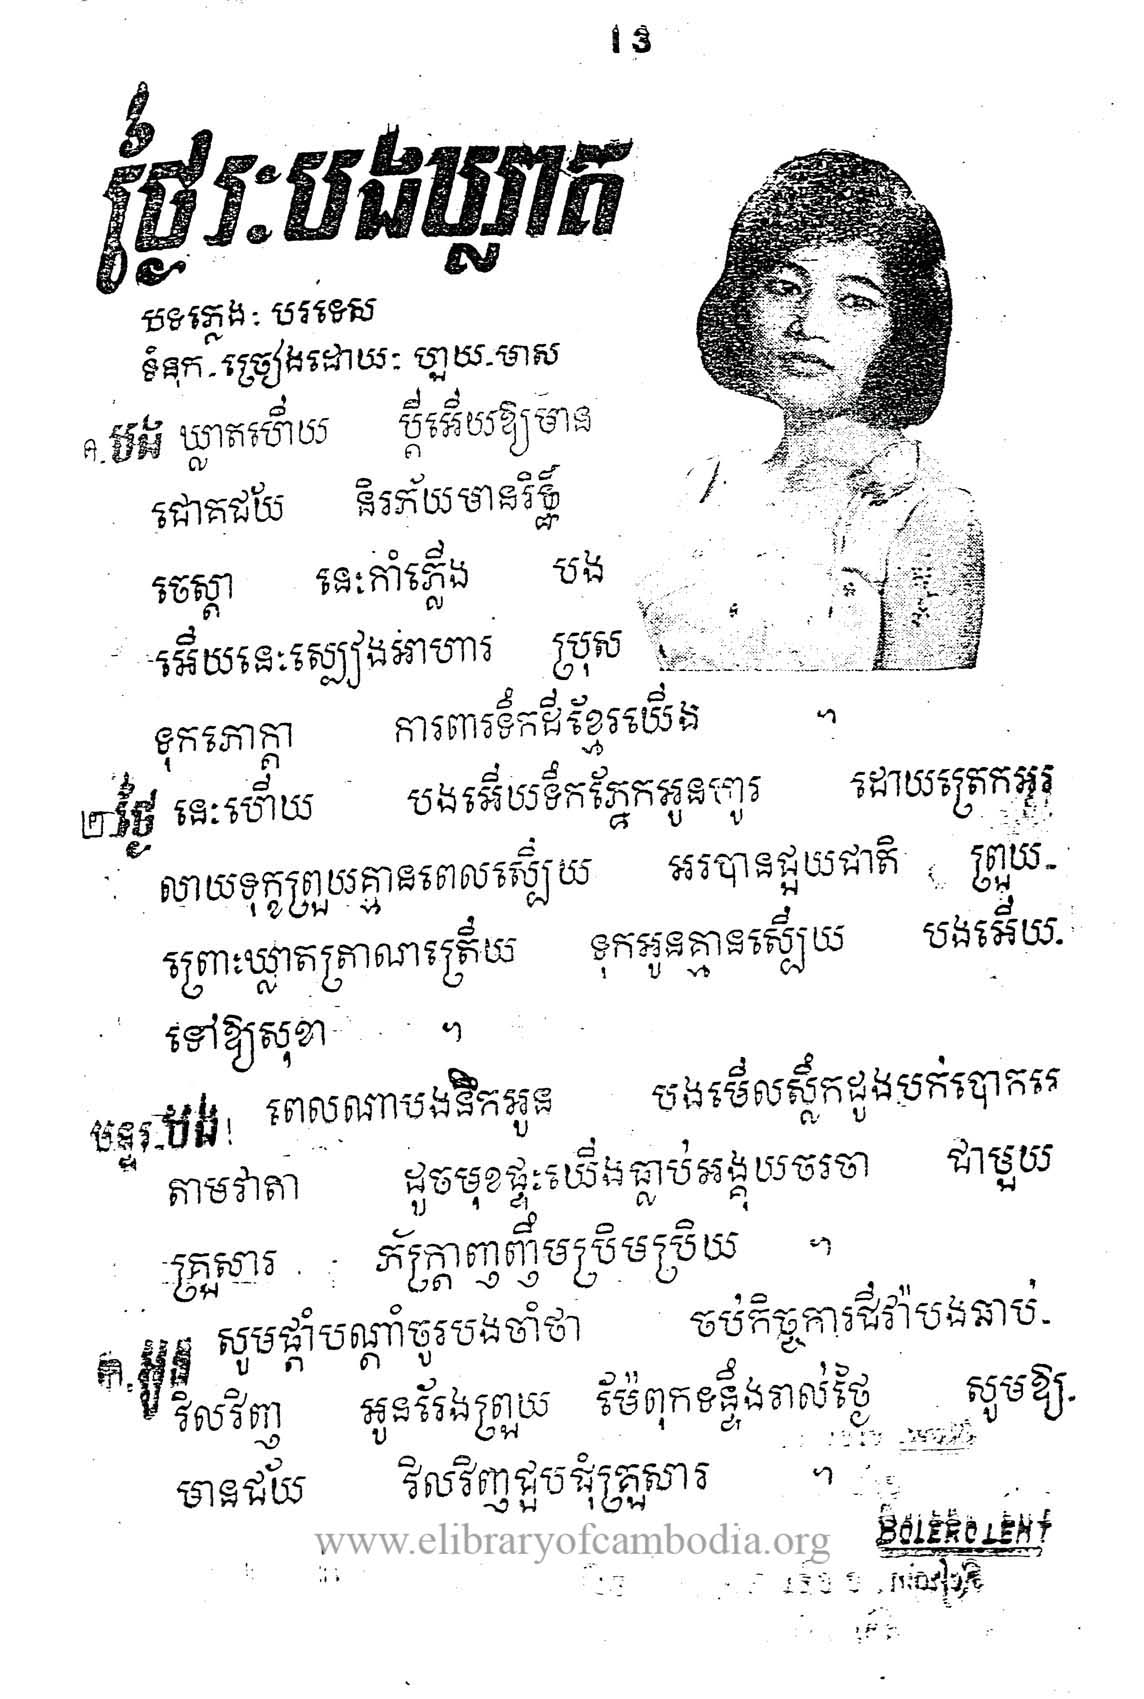 13
ថ្ងៃរះបងឃ្លាត
បទភ្លេង: បរទេស
ទំនុក-ច្រៀងដោយ: ហួយ-មាស
១.បង ឃ្លាតហើយ ប្ដីអើយឱ្យមាន
ជោគជ័យ និរភ័យមានរិទ្ធិ៍
ចេស្ដា នេះកាំភ្លើង បង
អើយនេះស្បៀងអាហារ ប្រុស
ទុកភោក្ដា ការពារទឹកដីខ្មែរយើង ។
២.ថ្ងៃ នេះហើយ បងអើយទឹកភ្នែកអូនហូរ ដោយត្រេកអរ
លាយទុក្ខព្រួយគ្មានពេលស្បើយ អរបានជួយជាតិ ព្រួយ-
ព្រោះឃ្លាតត្រាណត្រើយ ទុកអូនគ្មានស្បើយ បងអើយ-
ទៅឱ្យសុខា ។
បន្ទរ-បង់! ពេលណាបងនឹកអូន បងមើលស្លឹកដូងបក់បោករេ
តាមវាតា ដូចមុខផ្ទះយើងធ្លាប់អង្គុយចរចា ជាមួយ
គ្រួសារ ភ័ក្ត្រាញញឹមប្រិមប្រិយ ។
៣.អូន សូមផ្ដាំបណ្ដាំចូរបងចាំថា ចប់កិច្ចការជីវ៉ាបងឆាប់-
វិលវិញ អូនរែងព្រួយ ម៉ែពុកទន្ទឹងរាល់ថ្ងៃ សូមឱ្យ-
មានជ័យ វិលវិញជួបជុំគ្រួសារ ។
BOLERO LENT
www.elibraryofcambodia.org